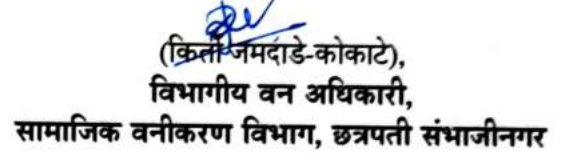 (किर्ती जमदाडे-कोकाटे),
विभागीय वन अधिकारी,
सामाजिक वनीकरण विभाग, छत्रपती संभाजीनगर